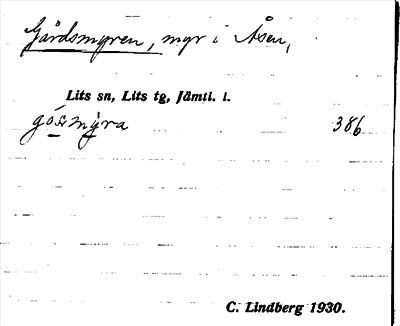 Gårdsmyren, myr i Åsen,
Lits sn, Lits tg, Jämtl. l.
gósmyra 386
C. Lindberg 1930.